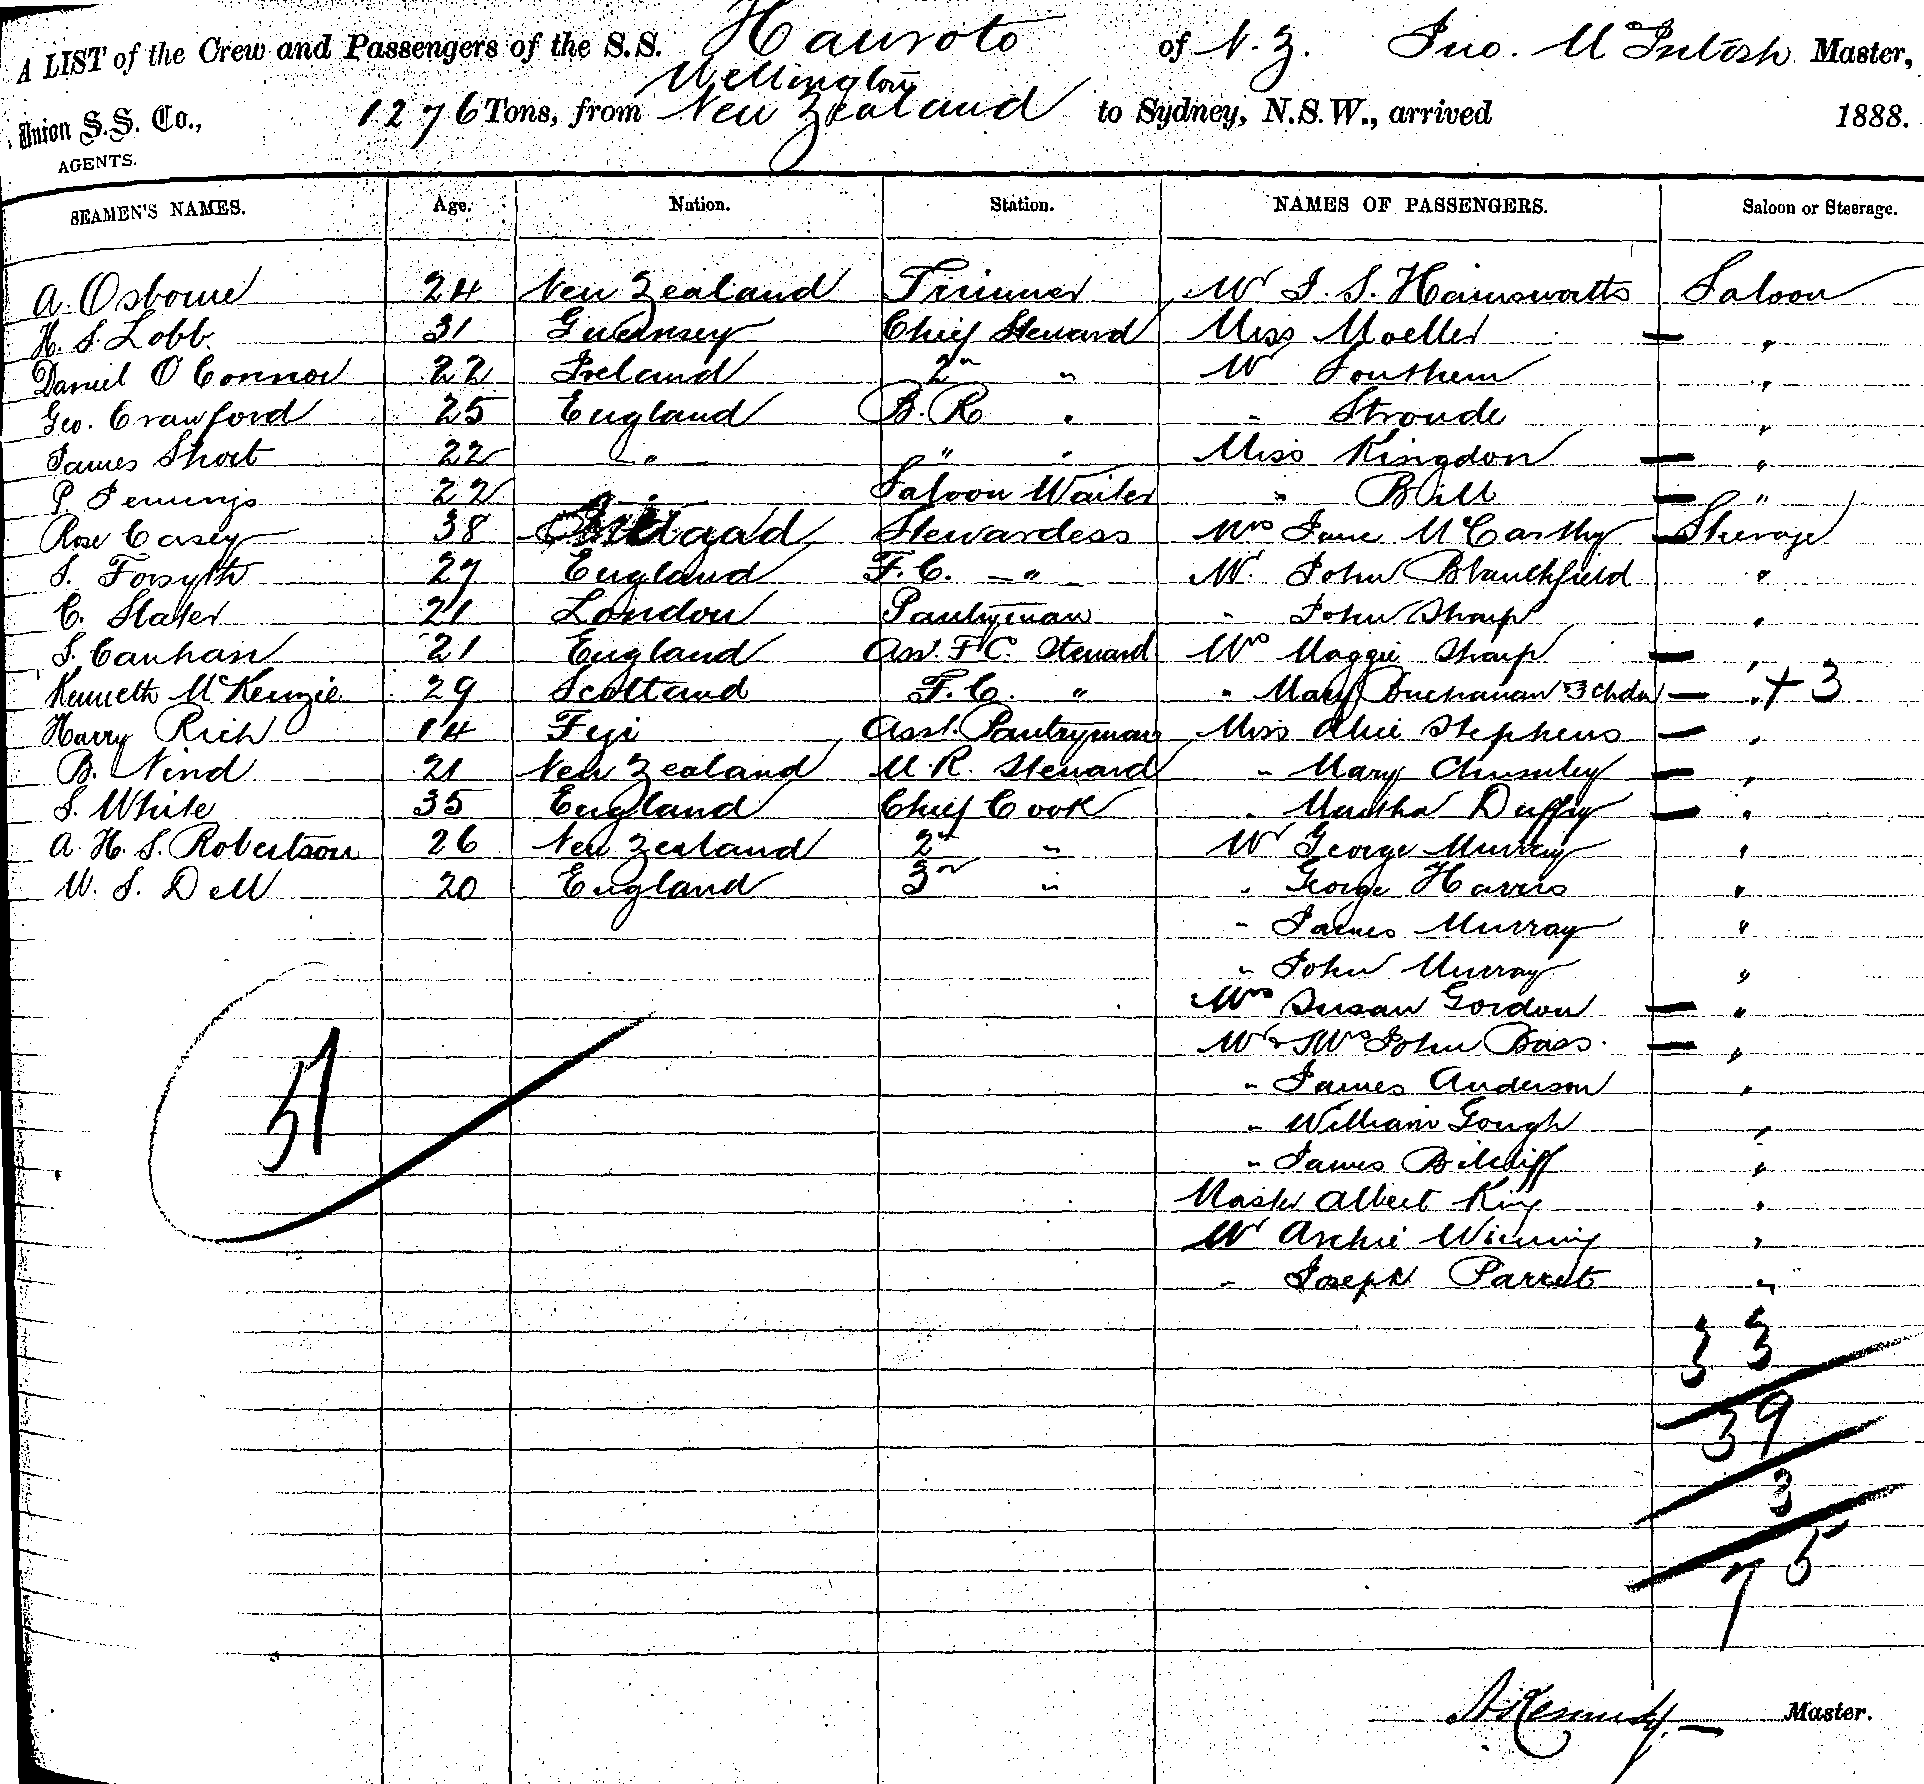 A LIST of the Crew and Passengers of the S.S. Hauroto of N.Z. Jno. McIntosh Master,
Wellington
1276 Tons, from New Zealand to Sydney, N.S.W., arrived 1888.
Union S.S. Co.,
AGENTS.
SEAMEN'S NAMES. Age. Nation. Station. NAMES OF PASSENGERS. Saloon or Steerage.
A. Osborne 24 New Zealand Trimmer Mr J. S. Hainsworth Saloon
H. S. Lobb 31 Guernsey Chief Steward Miss Moeller — "
Daniel O Connor 22 Ireland 2nd " Mr Southern "
Geo. Crawford 25 England B. R " " Stroude "
James Short 22 " " " Miss Kingdon — "
P. Jennings 22 " Saloon Waiter " Bill — "
Rose Casey 38 Stewardess Mrs Jane McCarthy — Steerage
J. Forsyth 27 England F. C. — " — Mr. John Blanchfield "
C. Slater 21 London Pantryman " John Sharp "
J. Canhan 21 England Ass. F. C. Steward Mrs Maggie Sharp — "
Kenneth McKenzie 29 Scotland F. C. " " Mary Buchanan & 3 Chdn — " + 3
Harry Rich 14 Fiji Asst. Pantryman Miss Alice Stephens — "
B. Nind 21 New Zealand M. R. Steward " Mary — "
J. White 35 England Chief Cook " Martha Duffy — "
A. H. S. Robertson 26 New Zealand 2nd " Mr George Murray "
W. J. Dell 20 England 3rd " " George Harris "
" James Murray "
" John Murray "
Mrs Susan Gordon — "
Mr & Mrs John Bass. — "
" James Anderson "
" William Gough "
" James "
Master Albert King "
Mr Archie "
" Joseph Parrett "
51
33
39
3
75
A Kennedy. — Master.